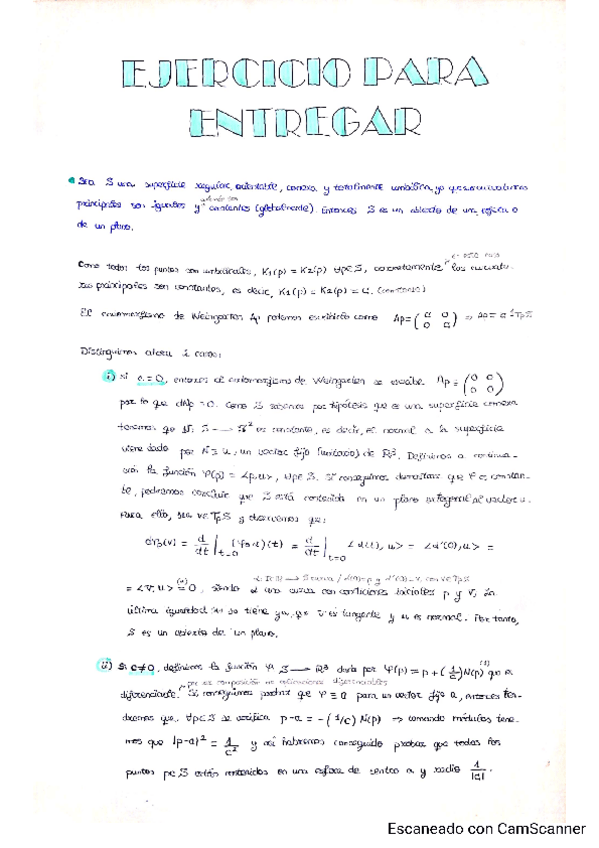 EJERCICIO PARA
ENTREGAR
Sea S una superficie regular, orientable, conexa y totalmente umbílica, ya que sus curvaturas
principales son iguales y constantes (globalmente). Entonces S es un abierto de una esfera o
de un plano.
Como todos los puntos son umbilicales, K1(p) = K2(p) ∀p∈S, concretamente las curvatu-
ras principales son constantes, es decir, K1(p) = K2(p) = c. (constante)
El endomorfismo de Weingarten Ap podemos escribirlo como Ap = (c 0 0 c)
Distinguimos ahora 2 casos:
i) Si c = 0, entonces el endomorfismo de Weingarten se escribe Ap = (0 0 0 0)
por lo que dNp = 0. Como S sabemos por hipótesis que es una superficie conexa
tenemos que N: S → S² es constante, es decir, el normal a la superficie
viene dado por N ≡ u, un vector fijo (unitario) de R³. Definimos a continua-
ción la función φ(p) = <p,u>, ∀p∈S. Si conseguimos demostrar que φ es constan-
te, podremos concluir que S está contenida en un plano ortogonal al vector u.
Para ello, sea v∈TpS y observamos que:
dφp(v) = d/dt|t=0 (φ∘α)(t) = d/dt|t=0 <α(t), u> = <α'(0), u> =
= <v, u> = 0, siendo α una curva con condiciones iniciales p y v. La
última igualdad se tiene ya que v es tangente y u es normal. Por tanto,
S es un abierto de un plano.
ii) Si c≠0, definimos la función φ: S → R³ dada por φ(p) = p + (1/c)N(p) que es
por ser composición de aplicaciones diferenciables
diferenciable. Si conseguimos probar que φ ≡ a para un vector fijo a, entonces ten-
dremos que, ∀p∈S se verifica p-a = -(1/c) N(p) → tomando módulos tene-
mos que |p-a|² = 1/c² y así habremos conseguido probar que todos los
puntos p∈S están contenidos en una esfera de centro a y radio 1/|c|.
Escaneado con CamScanner